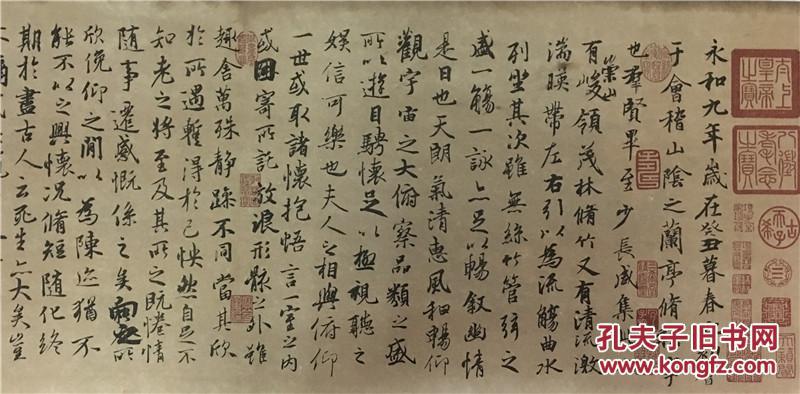 太上皇帝之寶
八徵耄念之寶
永和九年歲在癸丑暮春
于會稽山陰之蘭亭脩
也羣賢畢至少長咸集
有崇山峻領茂林脩竹又有清流激
湍暎帶左右引以為流觴曲水
列坐其次雖無絲竹管弦之
盛一觴一詠亦足以暢叙幽情
是日也天朗氣清惠風和暢仰
觀宇宙之大俯察品類之盛
所以遊目騁懷足以極視聽之
娛信可樂也夫人之相與俯仰
一世或取諸懷抱悟言一室之內
或因寄所託放浪形骸之外雖
趣舍萬殊静躁不同當其欣
於所遇暫得於己怏然自足不
知老之將至及其所之既惓情
隨事遷感慨係之矣向之所
欣俛仰之閒以為陳迹猶不
能不以之興懷況脩短随化終
期於盡古人云死生亦大矣豈
孔夫子旧书网
www.kongfz.com